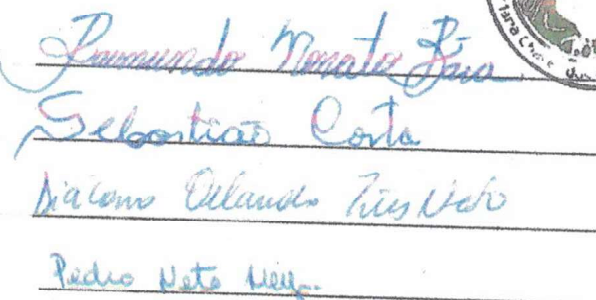 Raimundo Nonato
Sebastião Costa
Diácono Orlando Neto
Pedro Neto